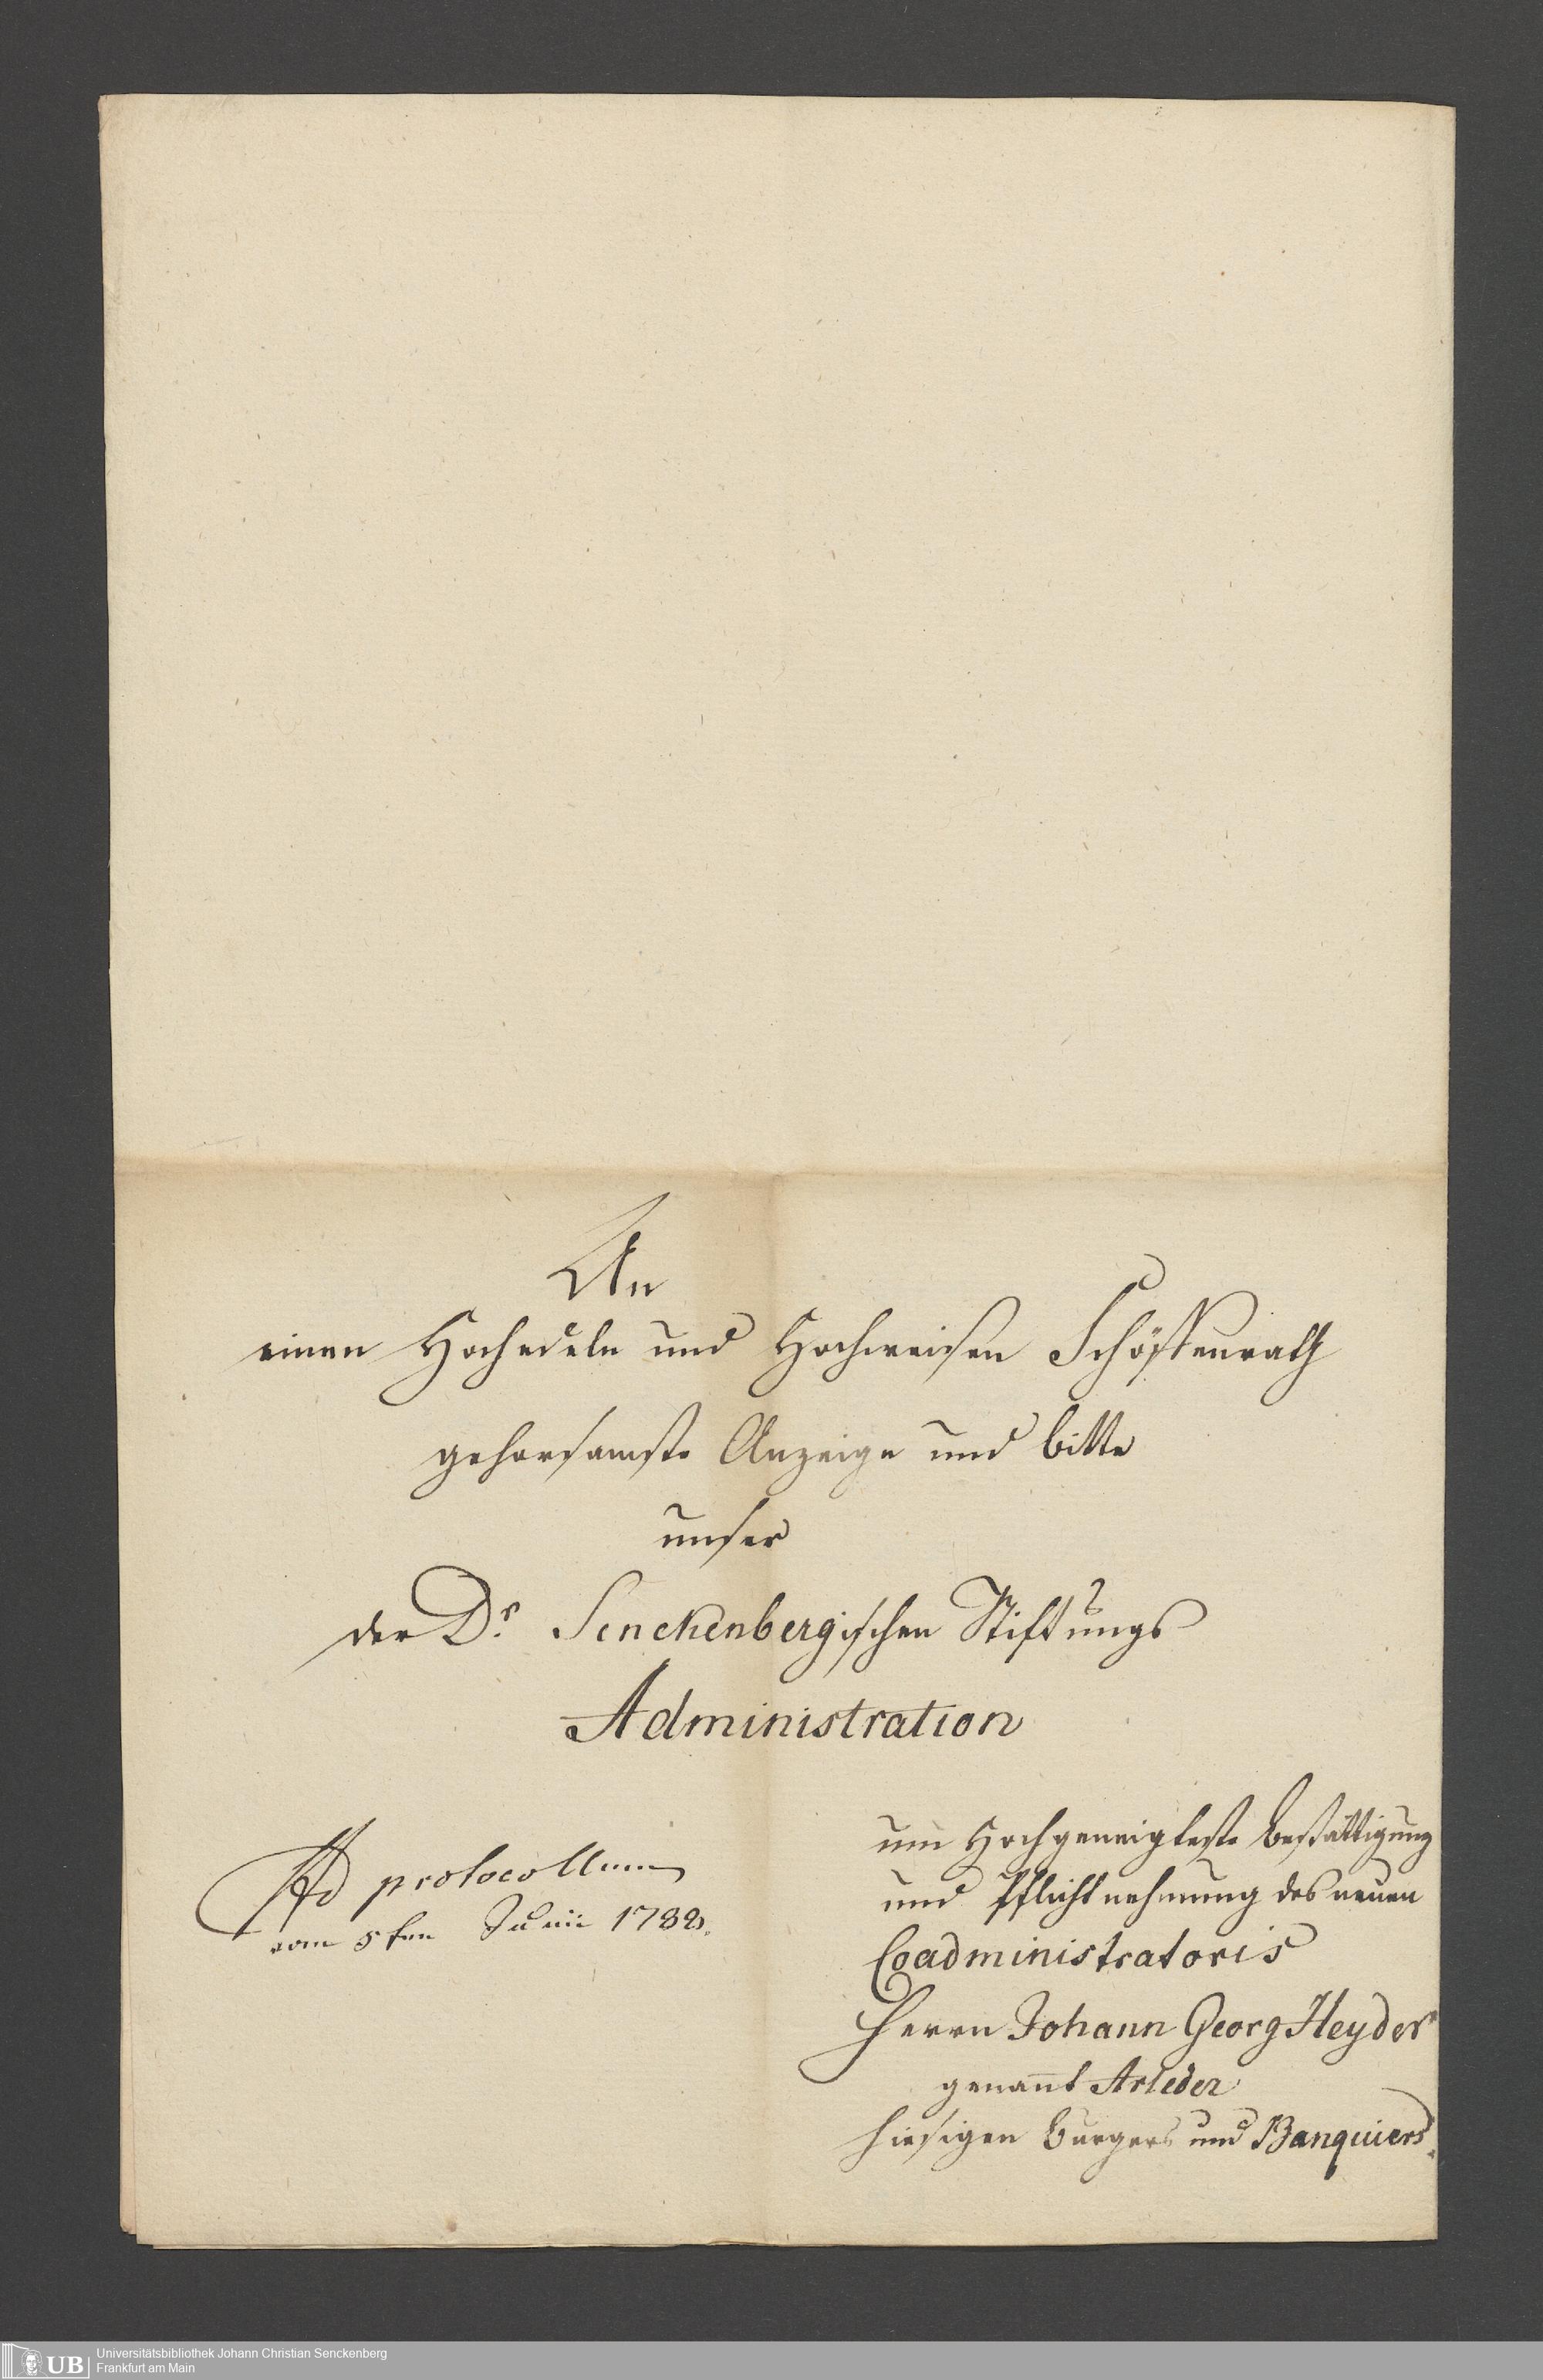 An
einen Hochedeln und Hochweisen Schöffenrath
gehorsamste Anzeige und bitte
unser
der Dr. Senckenbergischen Stiftungs
Administration
um Hochgeneigteste bestättigung
und Pflichtnehmung des neuen
Coadministratoris
Herrn Johann Georg Heyder
genannt Arleder
hiesigen burgers und Banquiers.
Ad protocollum
vom 5ten Junii 1788.
UB
Universitätsbibliothek Johann Christian Senckenberg
Frankfurt am Main